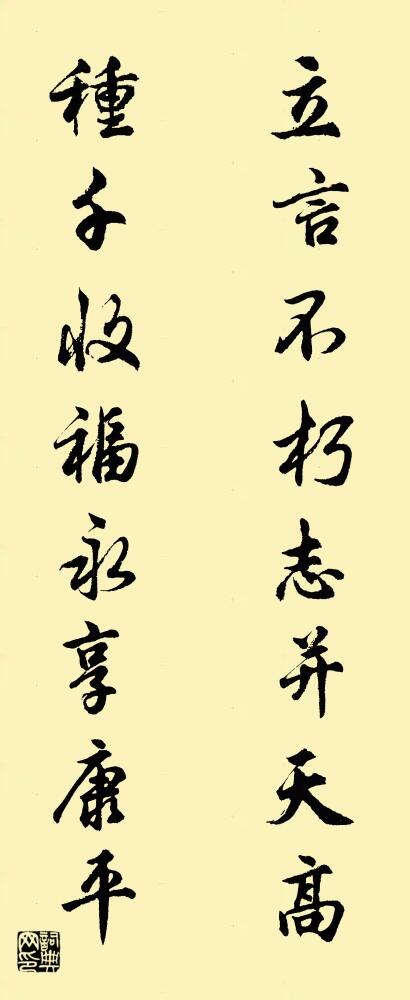 立言不朽志并天高
種千收福永享康平